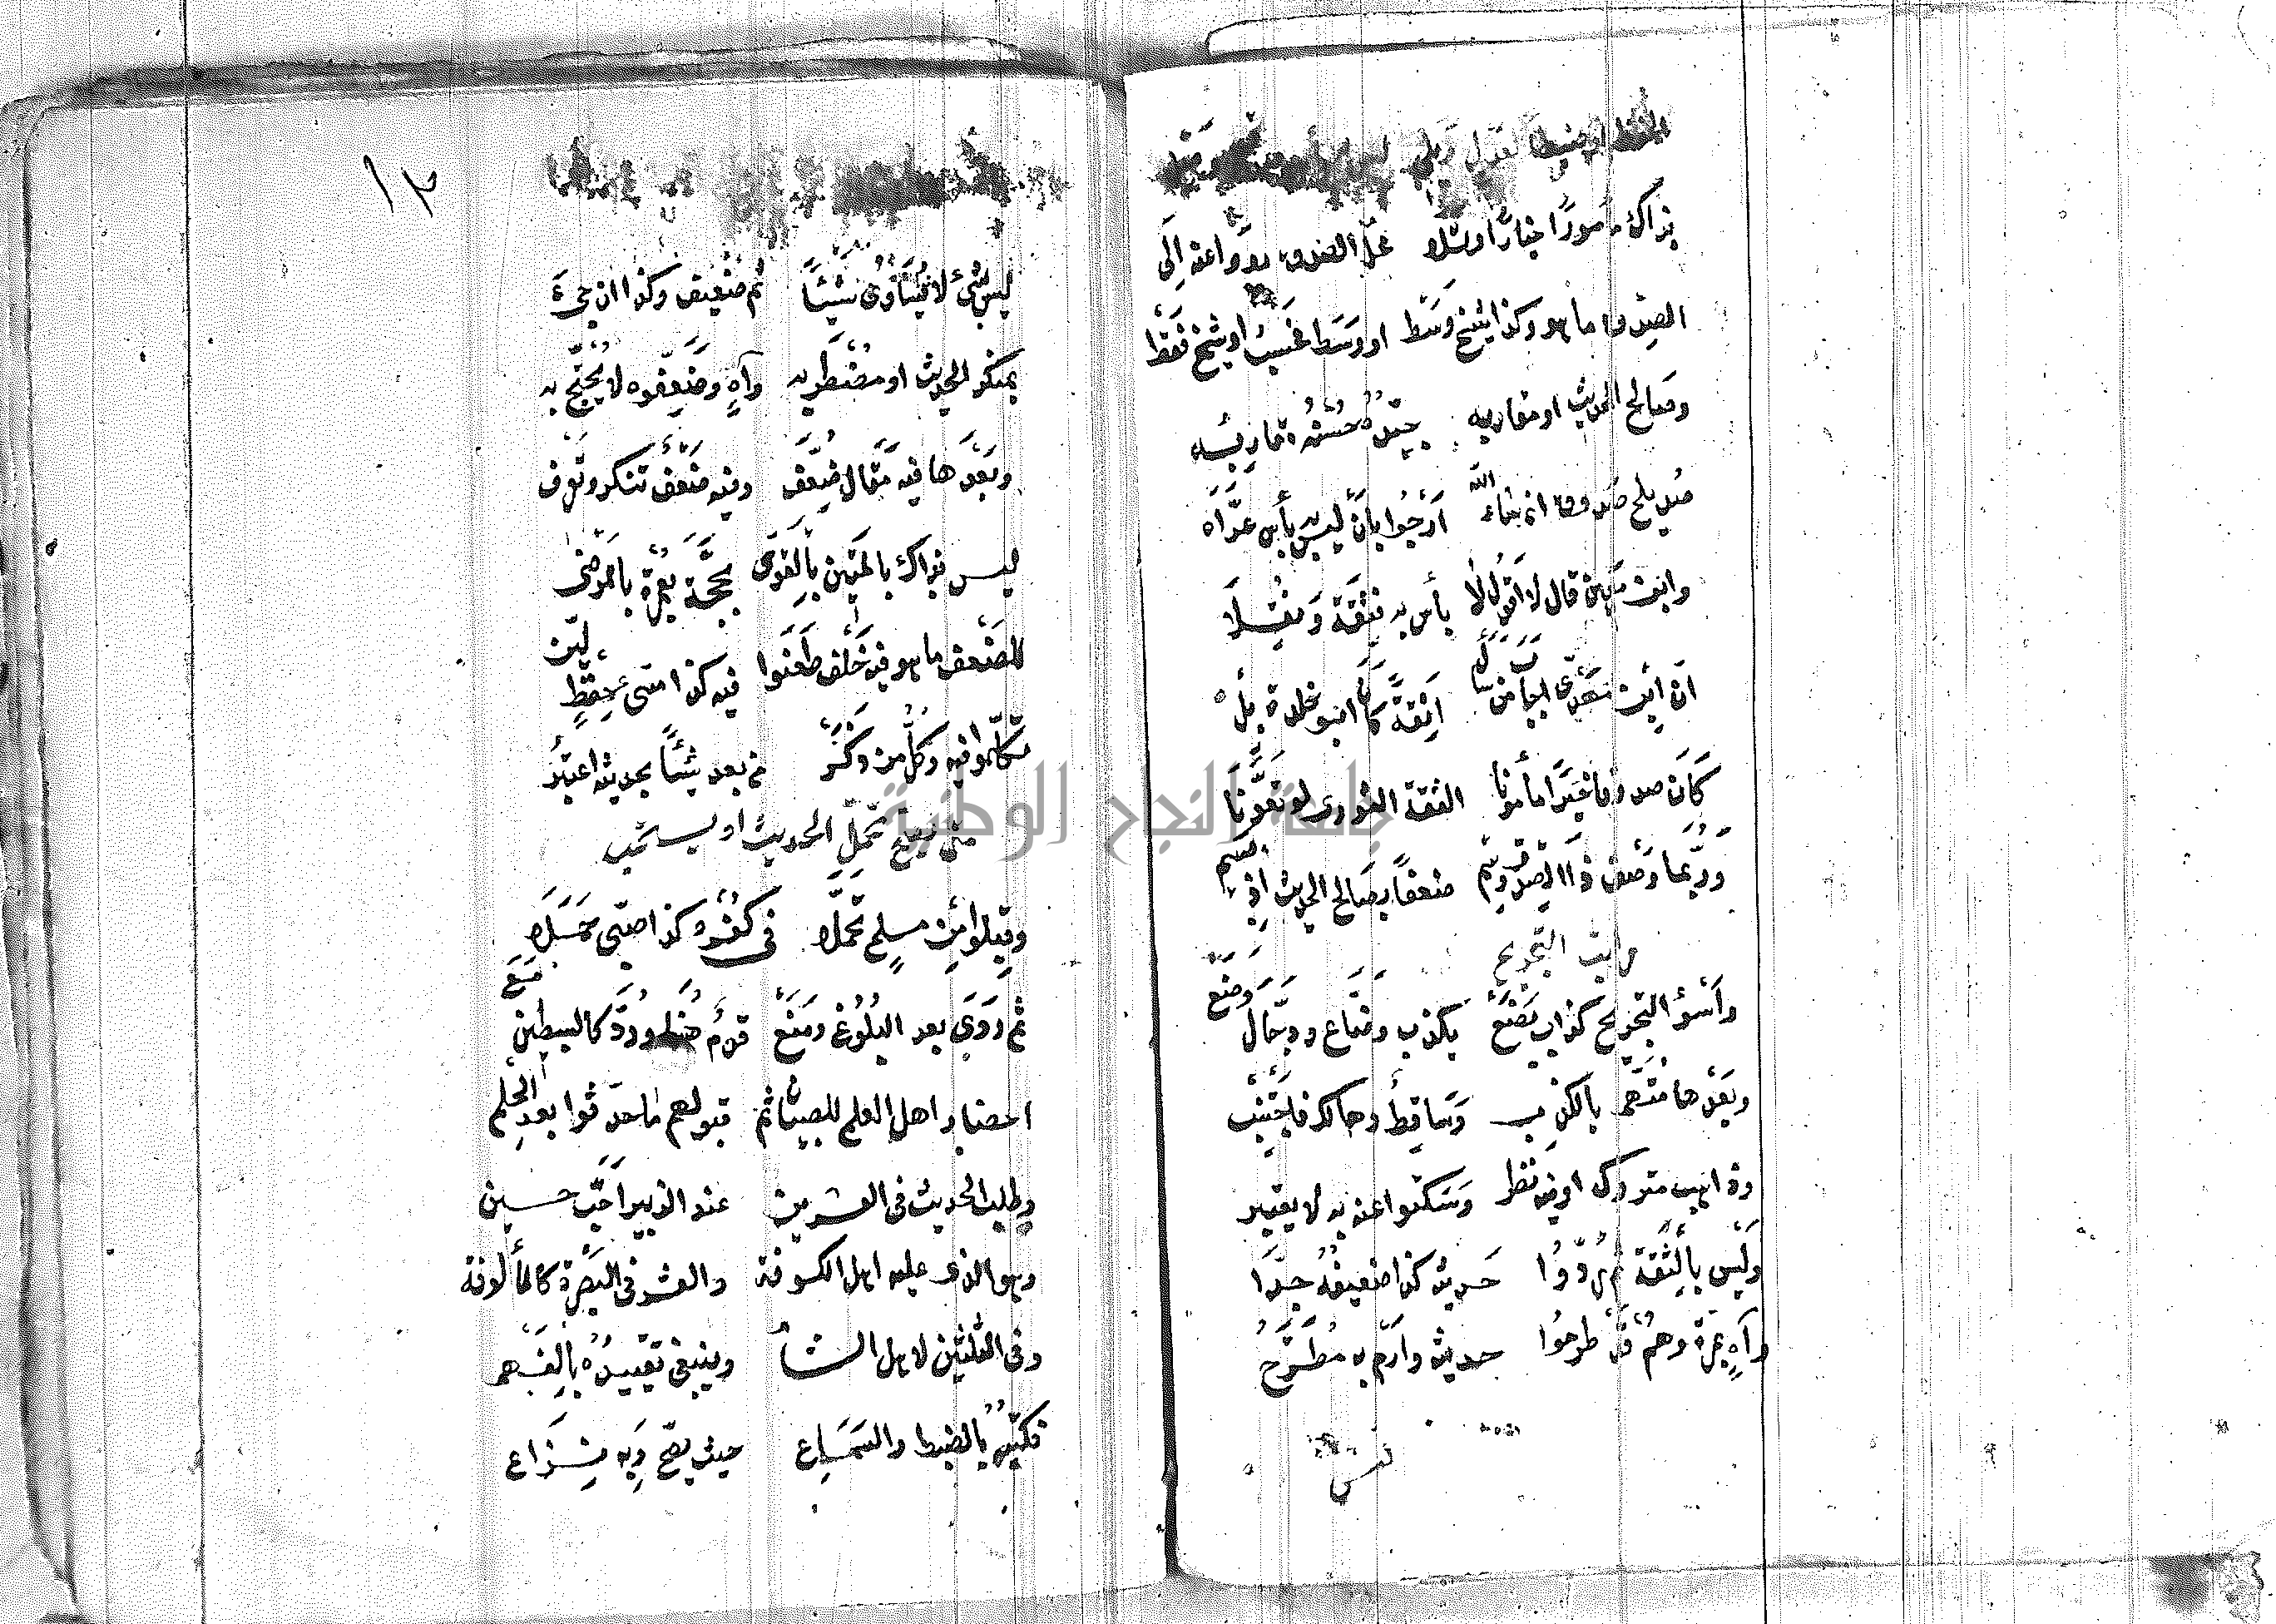 لقول ويلي ليس
بذاك مأمورا خيارا وتلا محل الصدق رووا عنه الى
الصدق ما هو وكذا شيخ وسط او وسط فحسب او شيخ فقط
وصالح الحديث او مقاربه جيده حسنه مقاربه
صويلح صدوق ان شاء الله ارجوا بأن ليس به بأس عراه
وابن معين قال لا اقول لا بأس به فثقة ونقلا
ان ابن مهدي اجاب من سأل اثقة كان ابو خلدة بل
كان صدوقا خيرا مأمونا الثقة الثوري لو تعونا
وربما وصف ذا الصدق وسم ضعفا بصالح الحديث اذ يسم
مراتب التجريح
وأسوؤ التجريح كذاب يضع يكذب وضاع ودجال وضع
وبعدها متهم بالكذب وساقط وهالك فاجتنب
وذاهب متروك او فيه نظر وسكتوا عنه به لا يعتبر
وليس بالثقة ثم ردوا حديثه كذا ضعيف جدا
واه بمرة وهم قد طرحوا حديثه وارم به مطرح
ليس
١٢
ليس بشيء لا يساوي شيئا ثم ضعيف وكذا ان جيء
بمنكر الحديث او مضطربه واه وضعفوه لا يحتج به
وبعدها فيه مقال ضعف وفيه ضعف تنكر وتعرف
ليس بذاك بالمتين بالقوي بحجة بعمدة بالمرضي
للضعف ما هو فيه خلف طعنوا فيه كذا سيء حفظ لين
تكلموا فيه وكل من ذكر من بعد شيئا بحديثه اعتبر
متى يصح تحمل الحديث او يستحب
وقبلوا من مسلم تحملا في كفره كذا صبي حملا
ثم روى بعد البلوغ ومنع قوم هنا ورد كالسبطين مع
احضار اهل العلم للصبيان ثم قبولهم ما حدثوا بعد الحلم
وطلب الحديث في العشرين عند الزبيري احب حين
وهو الذي عليه اهل الكوفة والعشر في البصرة كالمألوفة
وفي الثلثين لاهل الشأم وينبغي تقييده بالفهم
فكتبه بالضبط والسماع حيث يصح وبه نزاع
جامعة النجاح الوطنية